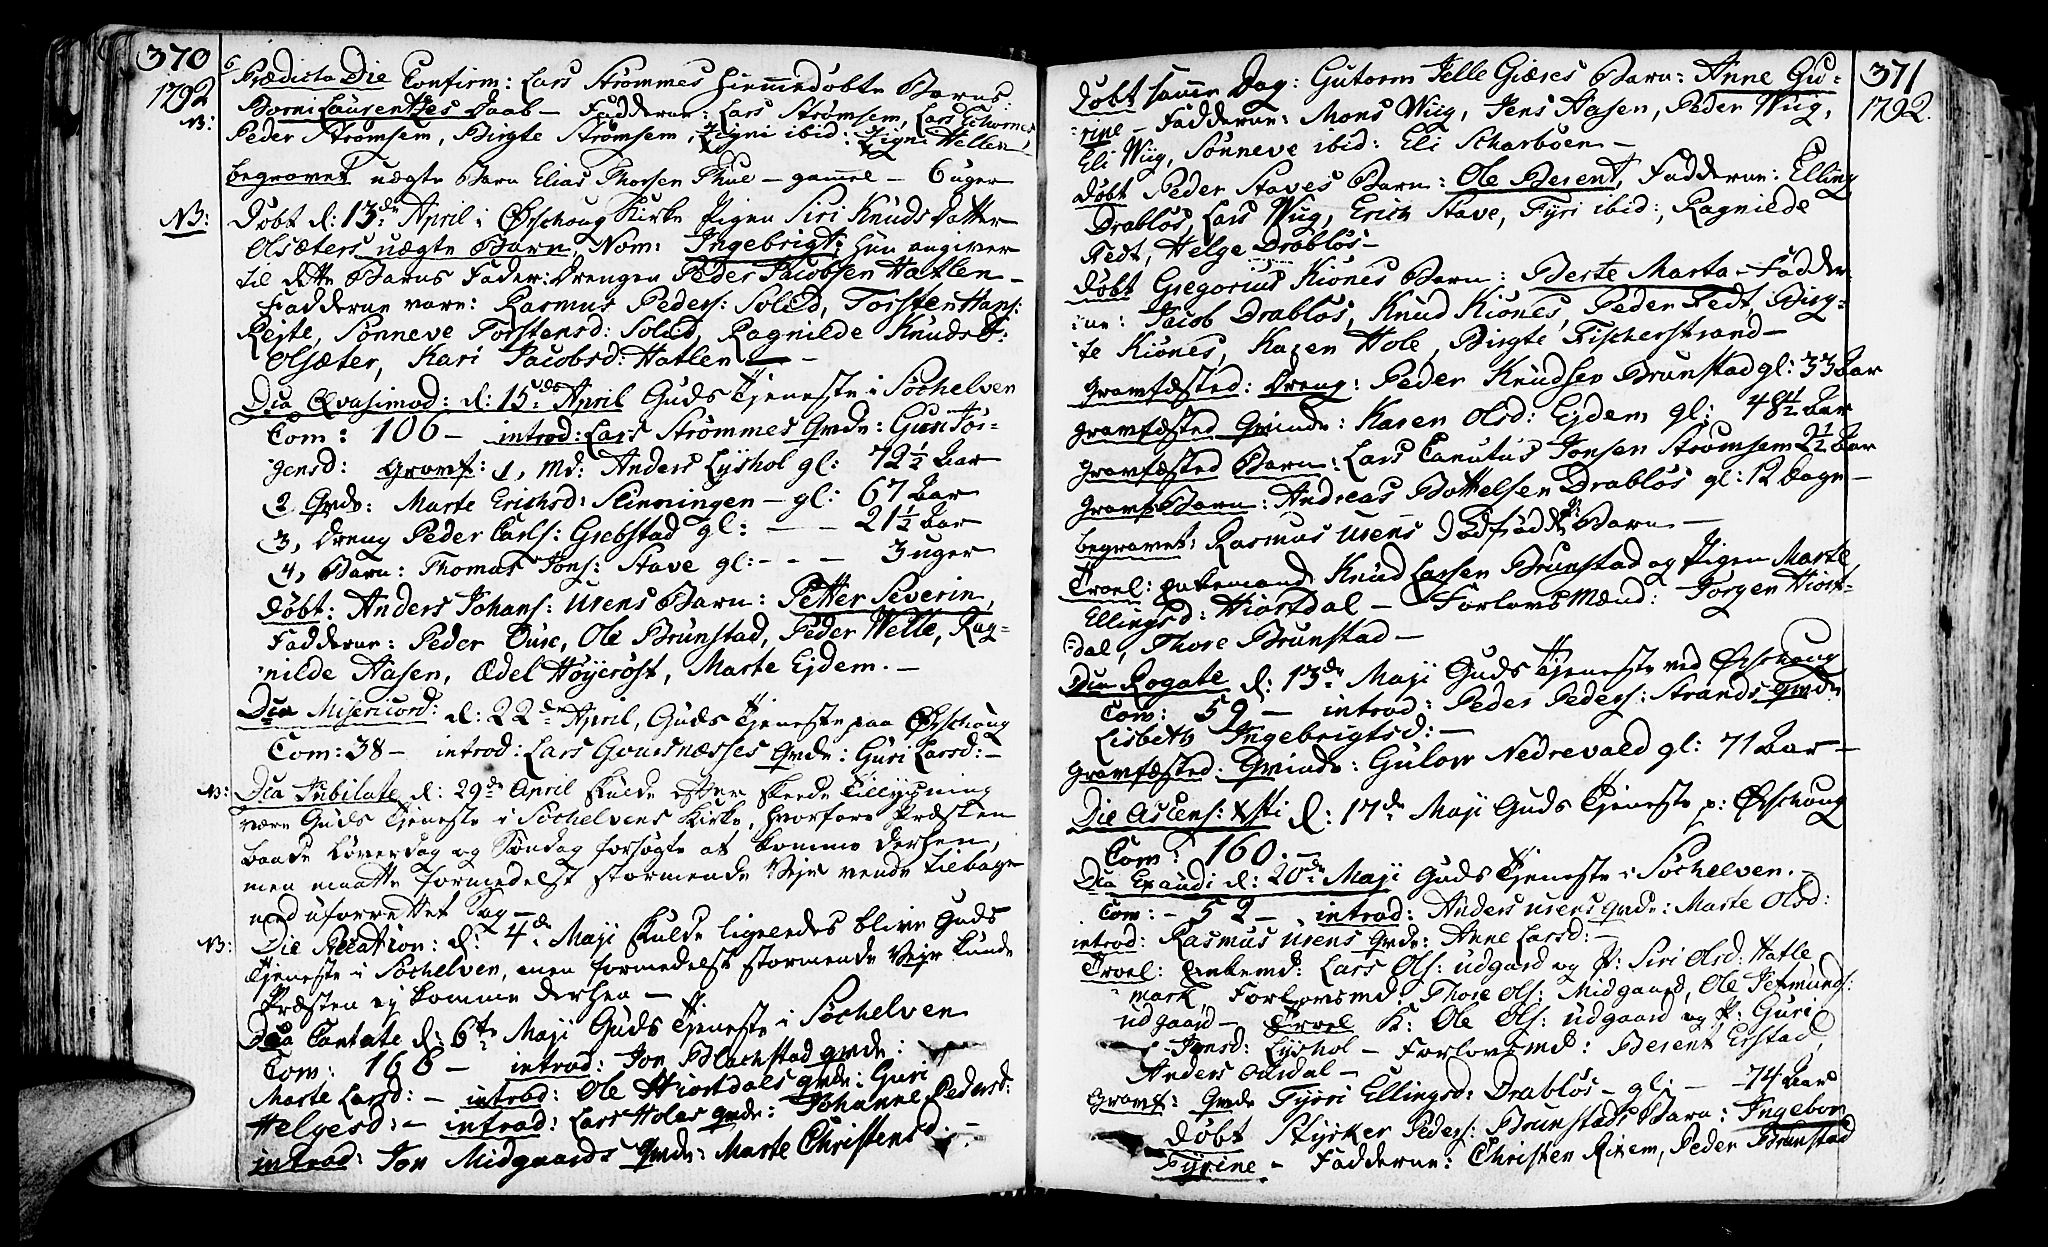 370
1792
Prædicto Die Confirm: Lars Strømmes hiemmedøbte Barns
Laurentzes Daab – Fadderne: Lars Strømsem, Lars
NB:
Peder Strømsem, Birgte Strømsem, Zigni ibid: Zigni Hellen
begravet uægte Barn Elias Thorsen Thue – gammel – 6 uger
NB: Døbt d: 13de April i Ørschoug Kirke Pigen Siri Knuds Datter
Olsæters uægte Barn, Nom: Ingebrigt, hun angiver
til dette Barns Fader: Drengen Peder Jacobsen Hatlen –
Fadderne vare: Rasmus Peders: Solld, Torsten Hans:
Rejte, Sønneve Torstensd: Solld, Ragnilde Knudsd:
Olsæter, Kari Jacobsd: Hatlen –
Dca Qvasimod: d: 15de April Guds Tjeneste i Søchelven
Com: 106 – introd: Lars Strømmes Qvde: Guri Jør-
gensd: Gravf: 1, Md: Anders Lyshol gl: 72½ Aar
2 Qvde: Marte Erichsd: Slinningen – gl: 67 Aar
3, Dreng Peder Carls: Grebstad gl: – – 21½ Aar
4, Barn: Thomas Jons: Stave gl: – – – 3 uger
Døbt: Anders Johans: Urens Barn: Petter Severin,
Fadderne: Peder Ouse, Ole Brunstad, Peder Welle, Rag-
nilde Aasen, Ædel Høycrøst, Marte Ejdem. –
Dca Misericord: d: 22de April, Guds Tjeneste paa Ørschoug
Com: 38 – introd: Lars Gouesnæsses Qvde: Guri Larsd: –
NB: Dca Jubilate d: 29de April skulde efter skeede Tillysning
være Guds Tjeneste i Søchelvens Kirke, hvorfore Præsten
baade Løverdag og Søndag forsøgte at komme derhen,
men maatte formedelst stormende Vejr vende tilbage
med uforrettet Sag –
NB: Die Rogation: d: 4de Maji skulde ligeledes blive Guds
Tjeneste i Søchelven, men formedelst stormende Vejr kunde
Præsten ej komme derhen –
Dca Cantate d: 6te Maji Guds Tjeneste i Søchelven
Com: 168 – introd: Jon Blachstad Qvde:
Marte Larsd: – introd: Ole Hiortdals Qvde: Guri
Helgesd: – introd: Lars Holes Qvde: Johanne Pedersd:
introd: Jon Midgaards Qvde: Marte Christensd: –
371
1792.
Døbt samme Dag: Gutorm Jelle Giæres Barn: Anne Gu-
rine – Fadderne: Mons Wiig, Jens Aasen, Peder Wiig,
Eli Wiig, Sønneve ibid: Eli Scharboen –
Døbt Peder Staves Barn: Ole Berent, Fadderne: Elling
Drabløs, Lars Wiig, Erich Stave, Fyri ibid:, Ragnilde
Tedt, Helge Drabløs –
Døbt Gregorius Kiønes Barn: Berte Marta – Fadder-
ne: Jacob Drabløs, Knud Kiønes, Peder Tedt, Birg-
te Kiønes, Karen Hole, Birgte Fischerstrand –
Gravfæsted: Dreng: Peder Knudsen Brunstad gl: 33 Aar
gravfæsted Qvinde: Karen Olsd: Ejdem gl: 48½ Aar
gravfæsted Barn: Lars Canutus Jonsen Strømsem 2½ Aar
gravf: Barn: Andreas Bottelsen Drabløs gl: 12 Dage –
begravet: Rasmus Urens Dødfødde Barn –
Troel: Enkemand Knud Larsen Brunstad og Pigen Marte
Ellingsd: Hiortdal – Forlovs Mænd: Jørgen Hiort-
dal, Thore Brunstad –
Dca Rogate d: 13de Maji Guds Tjeneste ved Ørschoug
Com: 59 – introd: Peder Peders: Strands Qvde
Lisbeth Ingebrigtsd: –
gravfæsted: Qvinde: Gulov Nedrevald gl: 71 Aar –
Die Ascens: Xsti d: 17de Maji Guds Tjeneste p: Ørschoug
Com: 160. –
Dca Exaudi d: 20de Maji Guds Tjeneste i Søchelven. –
Com: – 52 – introd: Anders Urens Qvde: Marte Olsd:
introd: Rasmus Urens Qvde: Anne Larsd: –
Troel: Enkemd: Lars Ols: Udgaard og P: Siri Olsd: Hatle
mark, Forlovsmd: Thore Ols: Midgaard, Ole Jetmunds:
Udgaard – Troel K: Ole Ols: Udgaard og P: Guri
Jonsd: Lyshol – Forlovsmd: Berent Erstad,
Anders Oursdal –
Gravf: Qvde Fyrri Ellingsd: Drabløs – gl: – 74 Aar
Døbt Styrker Peders: Brunstads Barn: Ingebor
Fyrine – Fadderne: Christen Rixem, Peder Brunstad